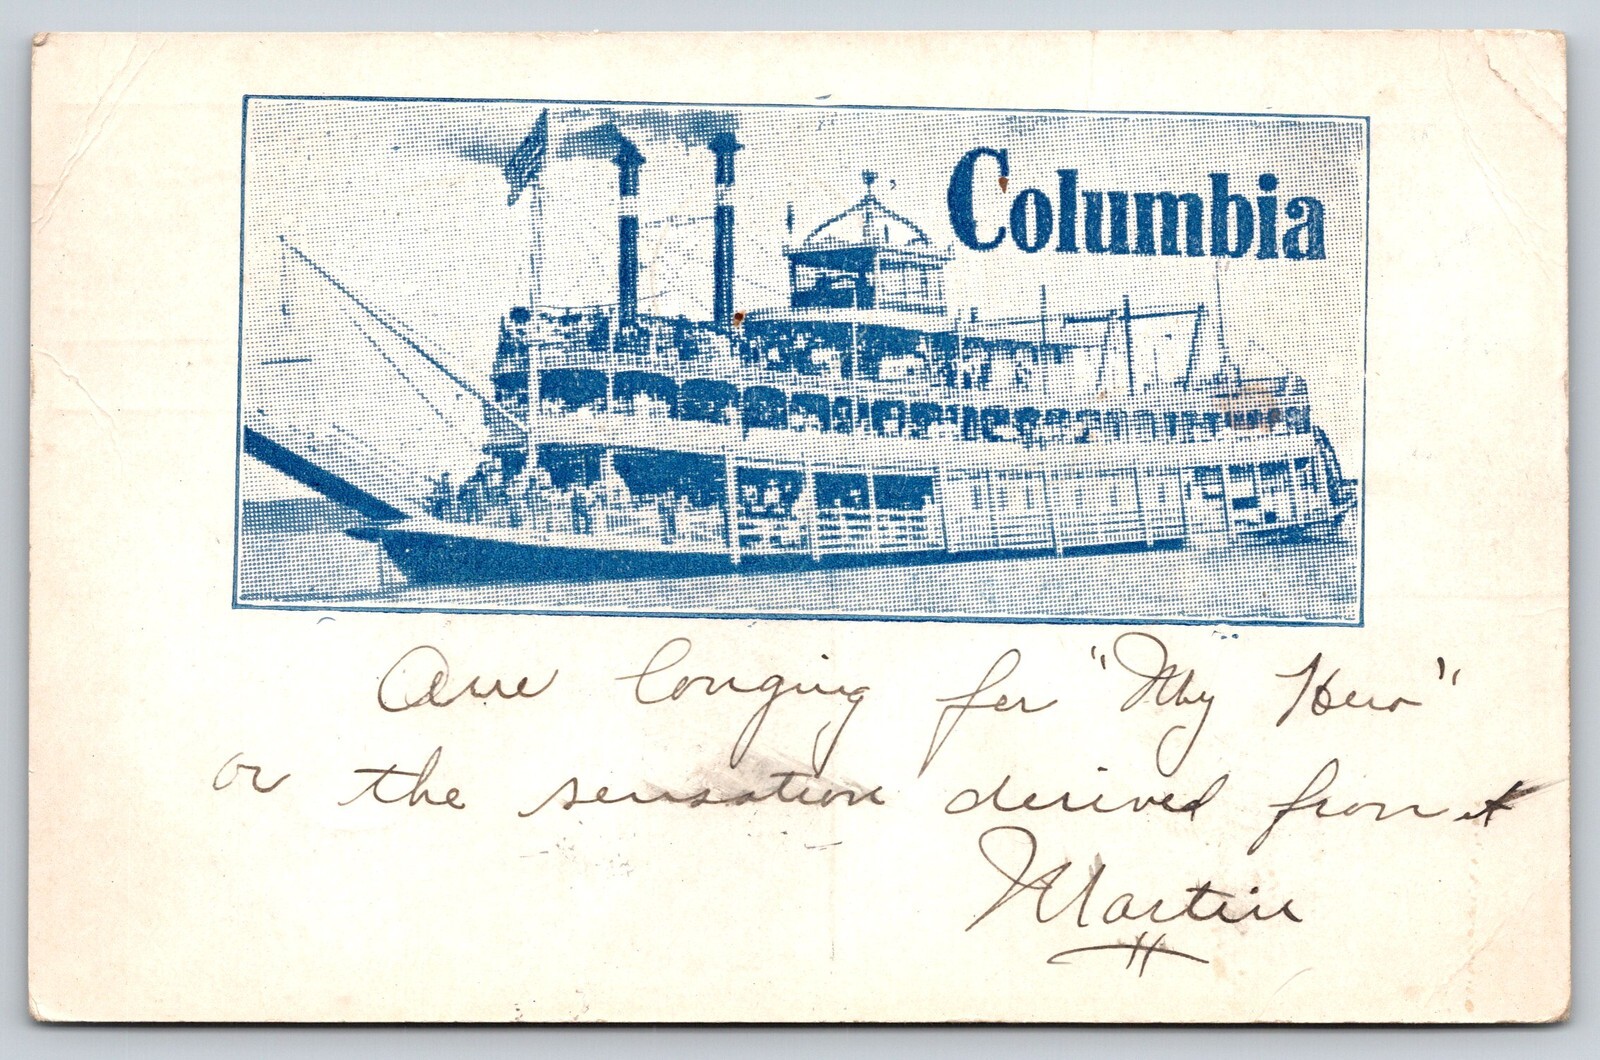 Columbia
Am longing for "My Hero"
or the sensation derived from it
Martin